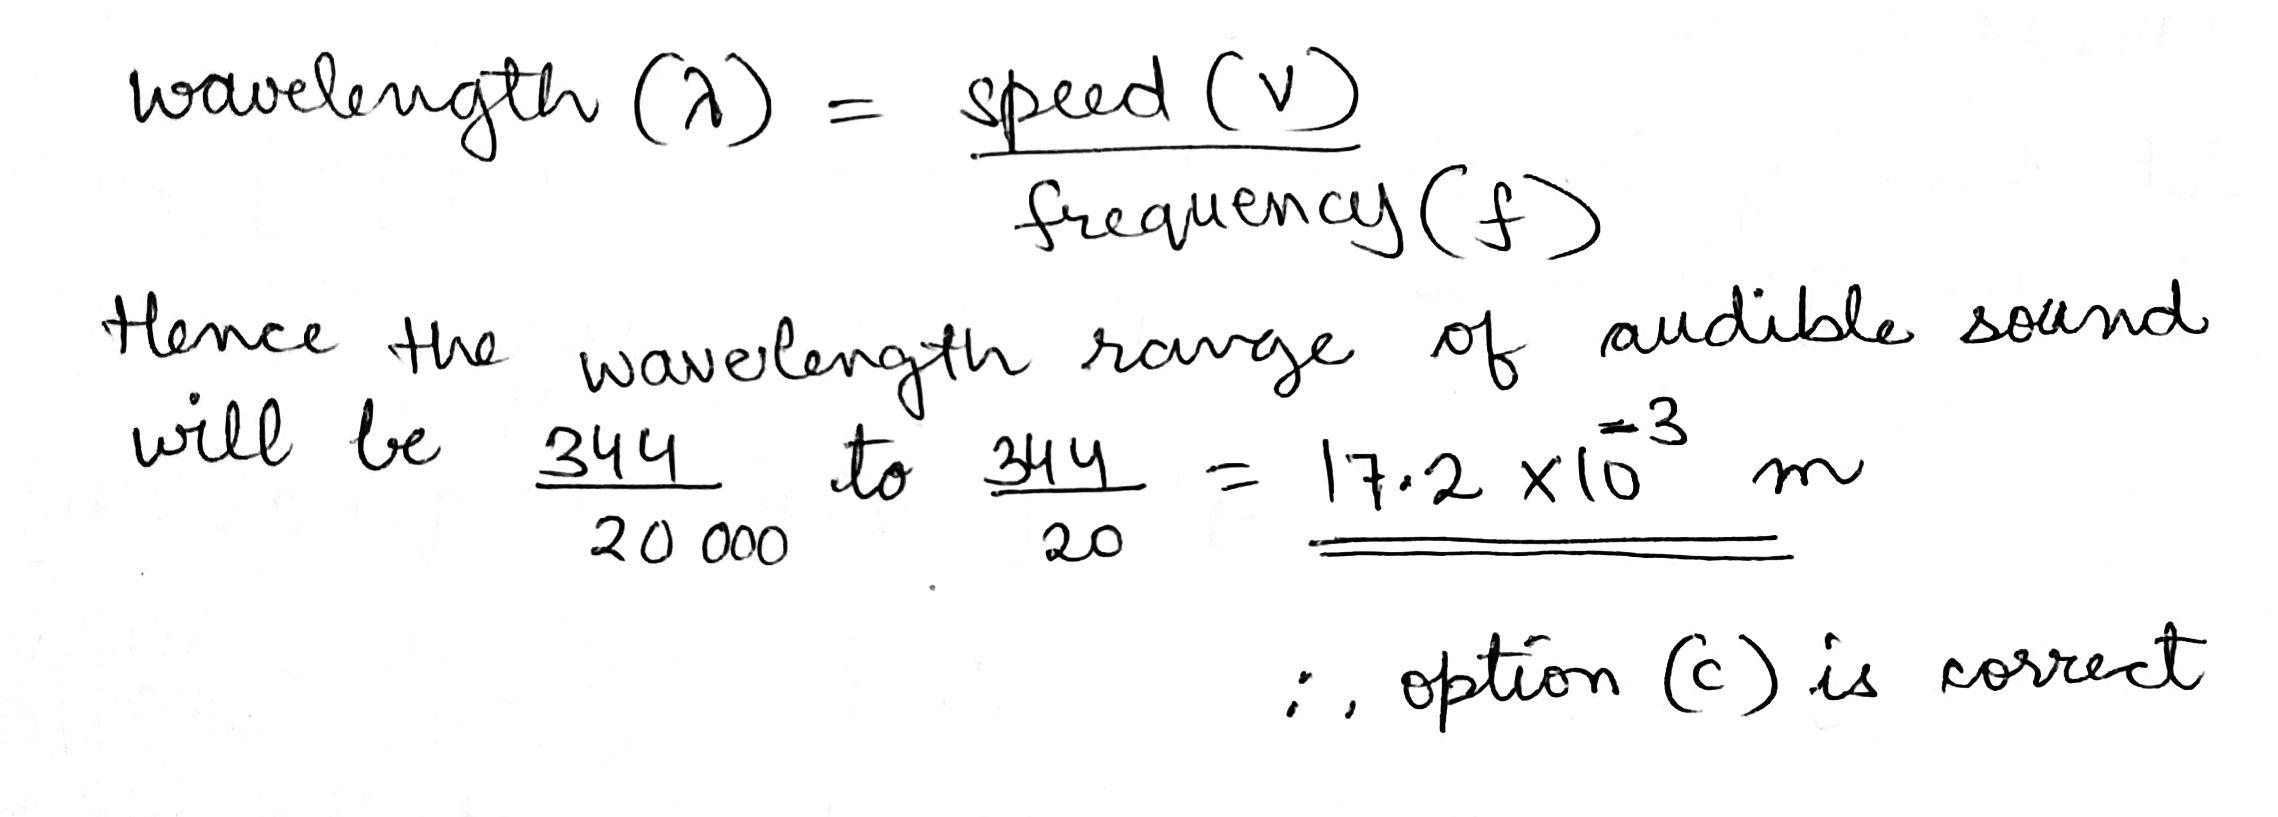 wavelength (λ) = speed (v)
frequency (f)
Hence the wavelength range of audible sound
will be 344 to 344 = 17.2 × 10⁻³ m
20 000 20
∴ option (c) is correct